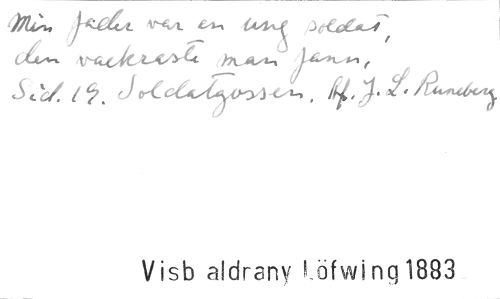 Min fader var en ung soldat,
den vackraste man fann,
Sid. 19. Soldatgossen. Af. J. L. Runeberg
Visb aldrany Löfwing 1883